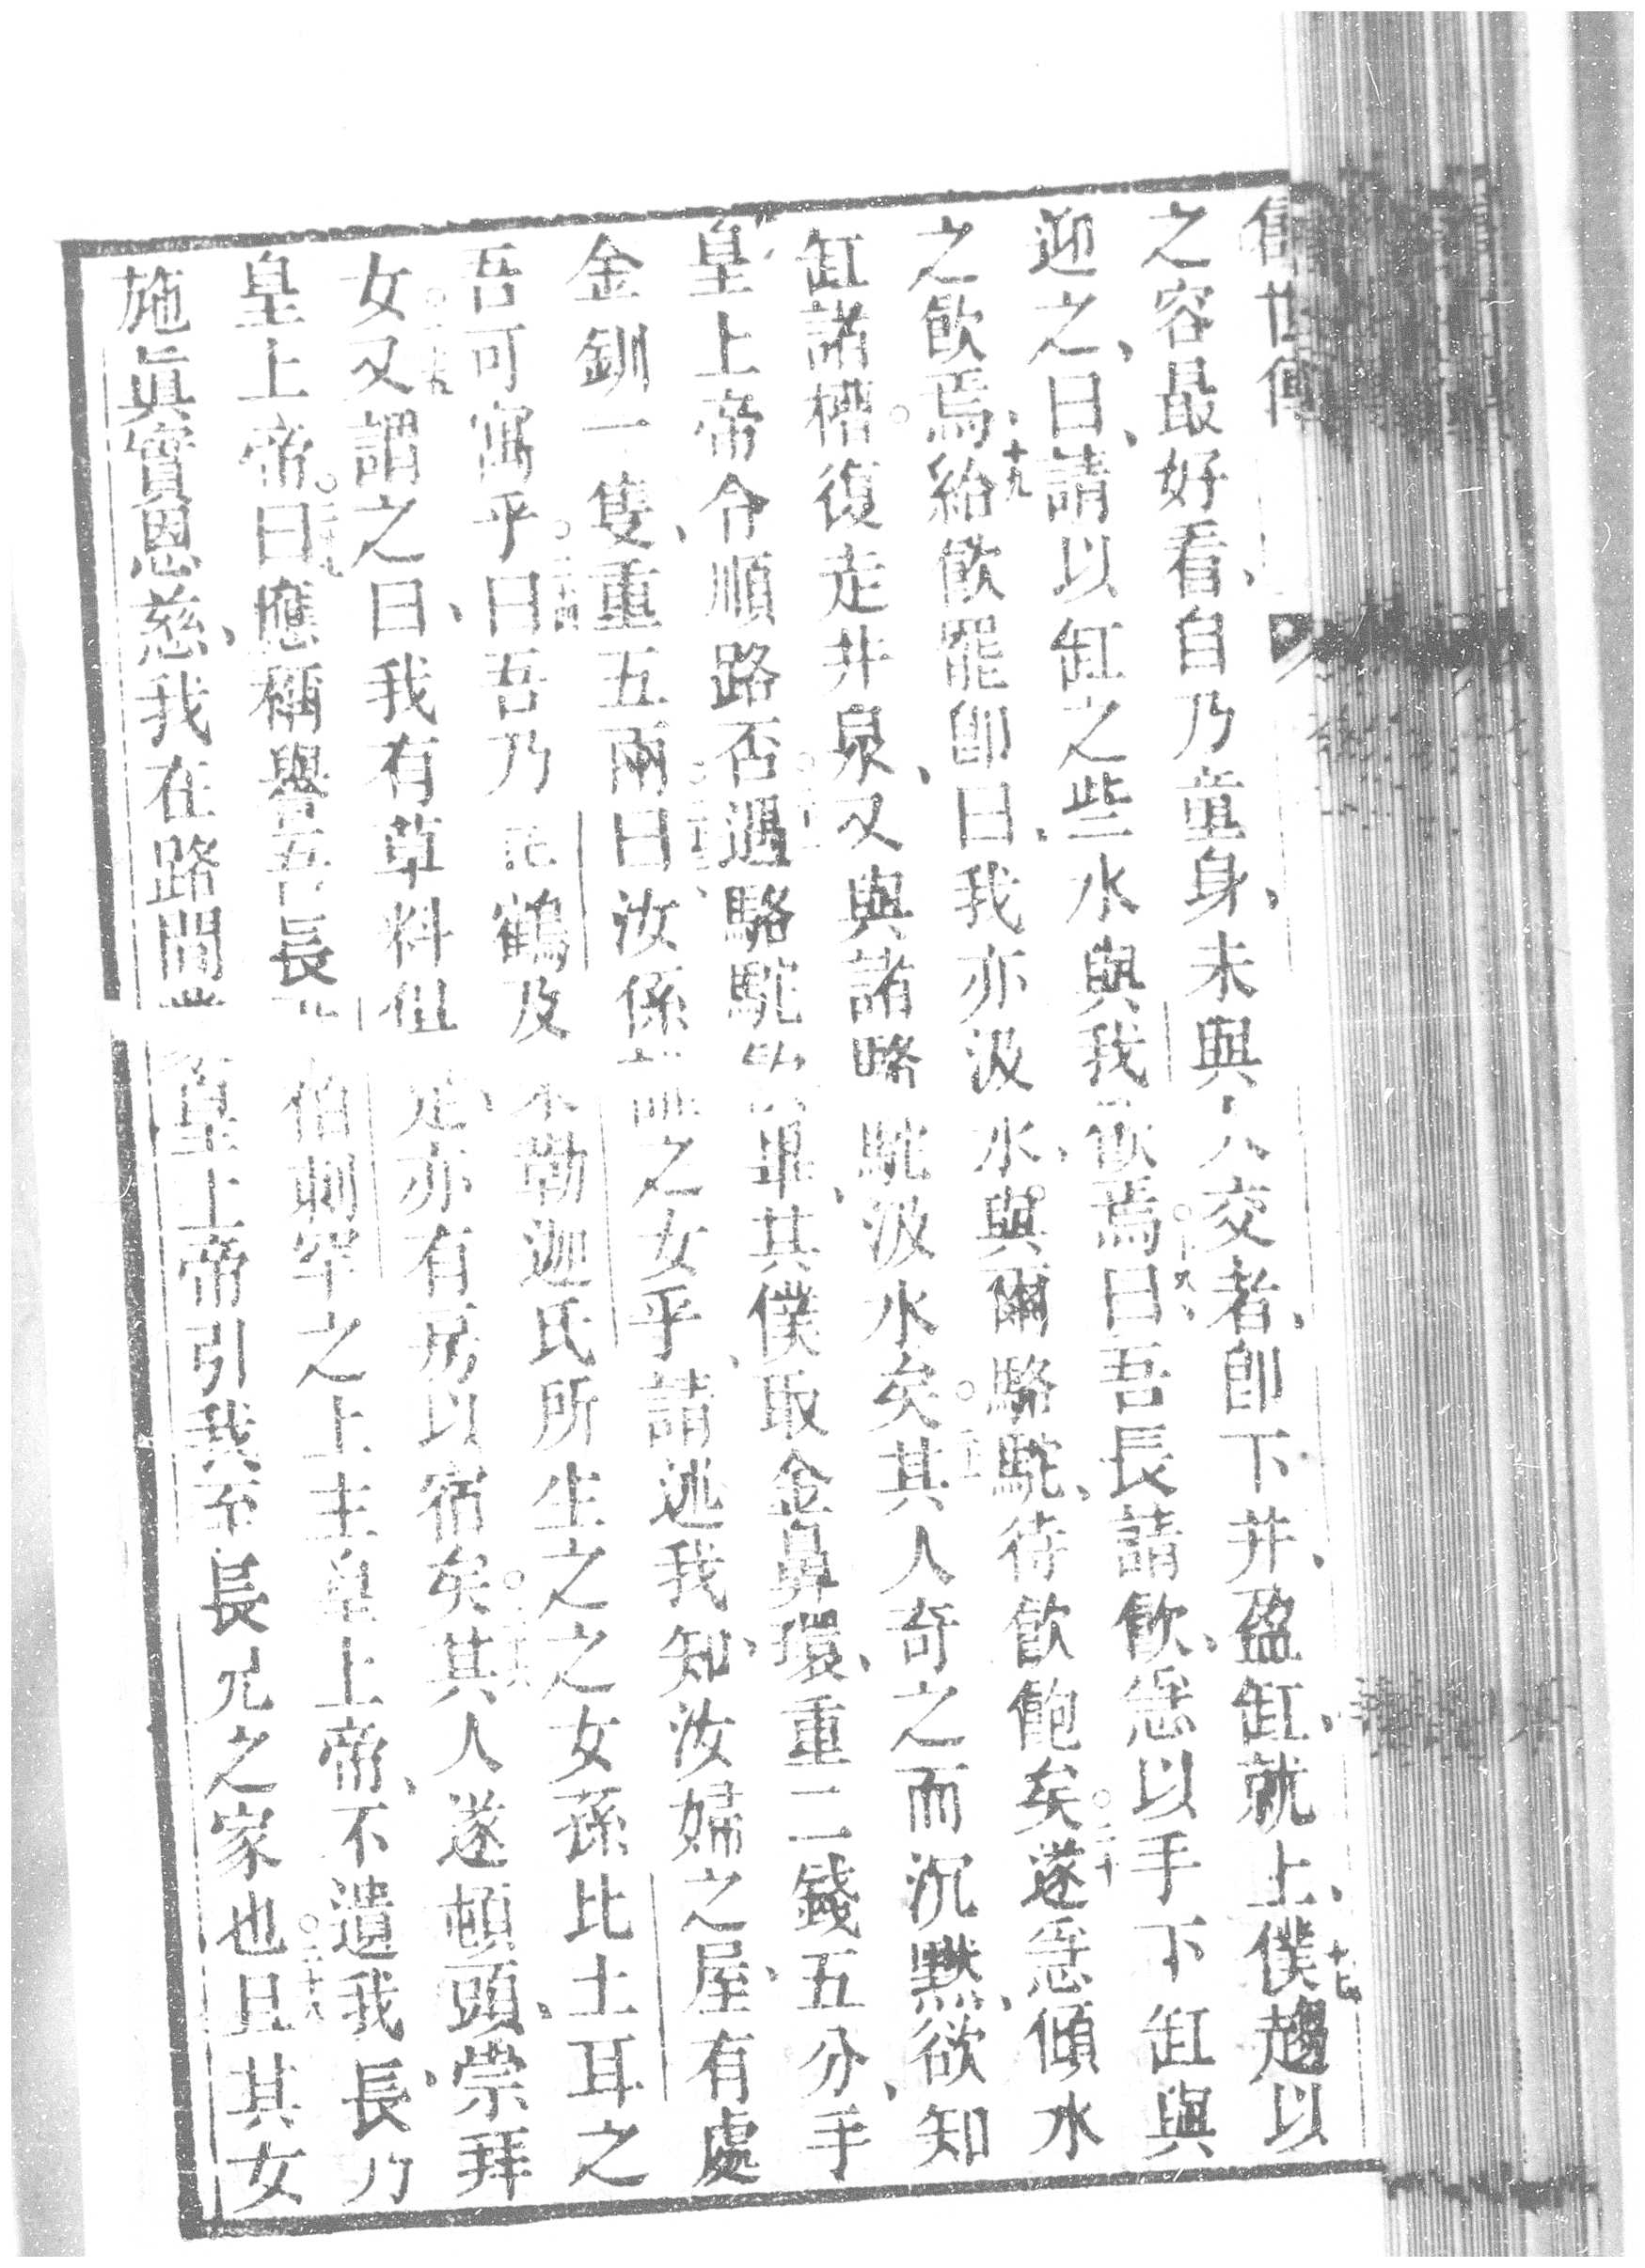 創世傳
之容最好看、自乃童身、未與人交者、卽下井、盈缸、就上、十七僕趨以
迎之、曰、請以缸之些水與我飲焉。十八、曰吾長請飲、急以手下缸與
之飲焉、十九給飲罷卽曰、我亦汲水、與爾駱駝、待飲飽矣。二十遂急傾水
缸諸槽。復走井泉、又與諸駱駝汲水矣。其人奇之而沉默、欲知
皇上帝令順路否。駱駝飲畢、其僕取金鼻環、重二錢五分、手
金釧一隻、重五兩、曰汝係誰之女乎、請述我知、汝婦之屋、有處
吾可寓乎。曰吾乃鶴及米勒迦氏所生之之女孫比土耳之
女。又謂之曰、我有草料俱足、亦有房以宿矣。其人遂頓頭、崇拜
皇上帝。曰應稱譽吾長伯剌罕之上主皇上帝、不遺我長、乃
施眞實恩慈、我在路間皇上帝引我至長兄之家也。二十八且其女